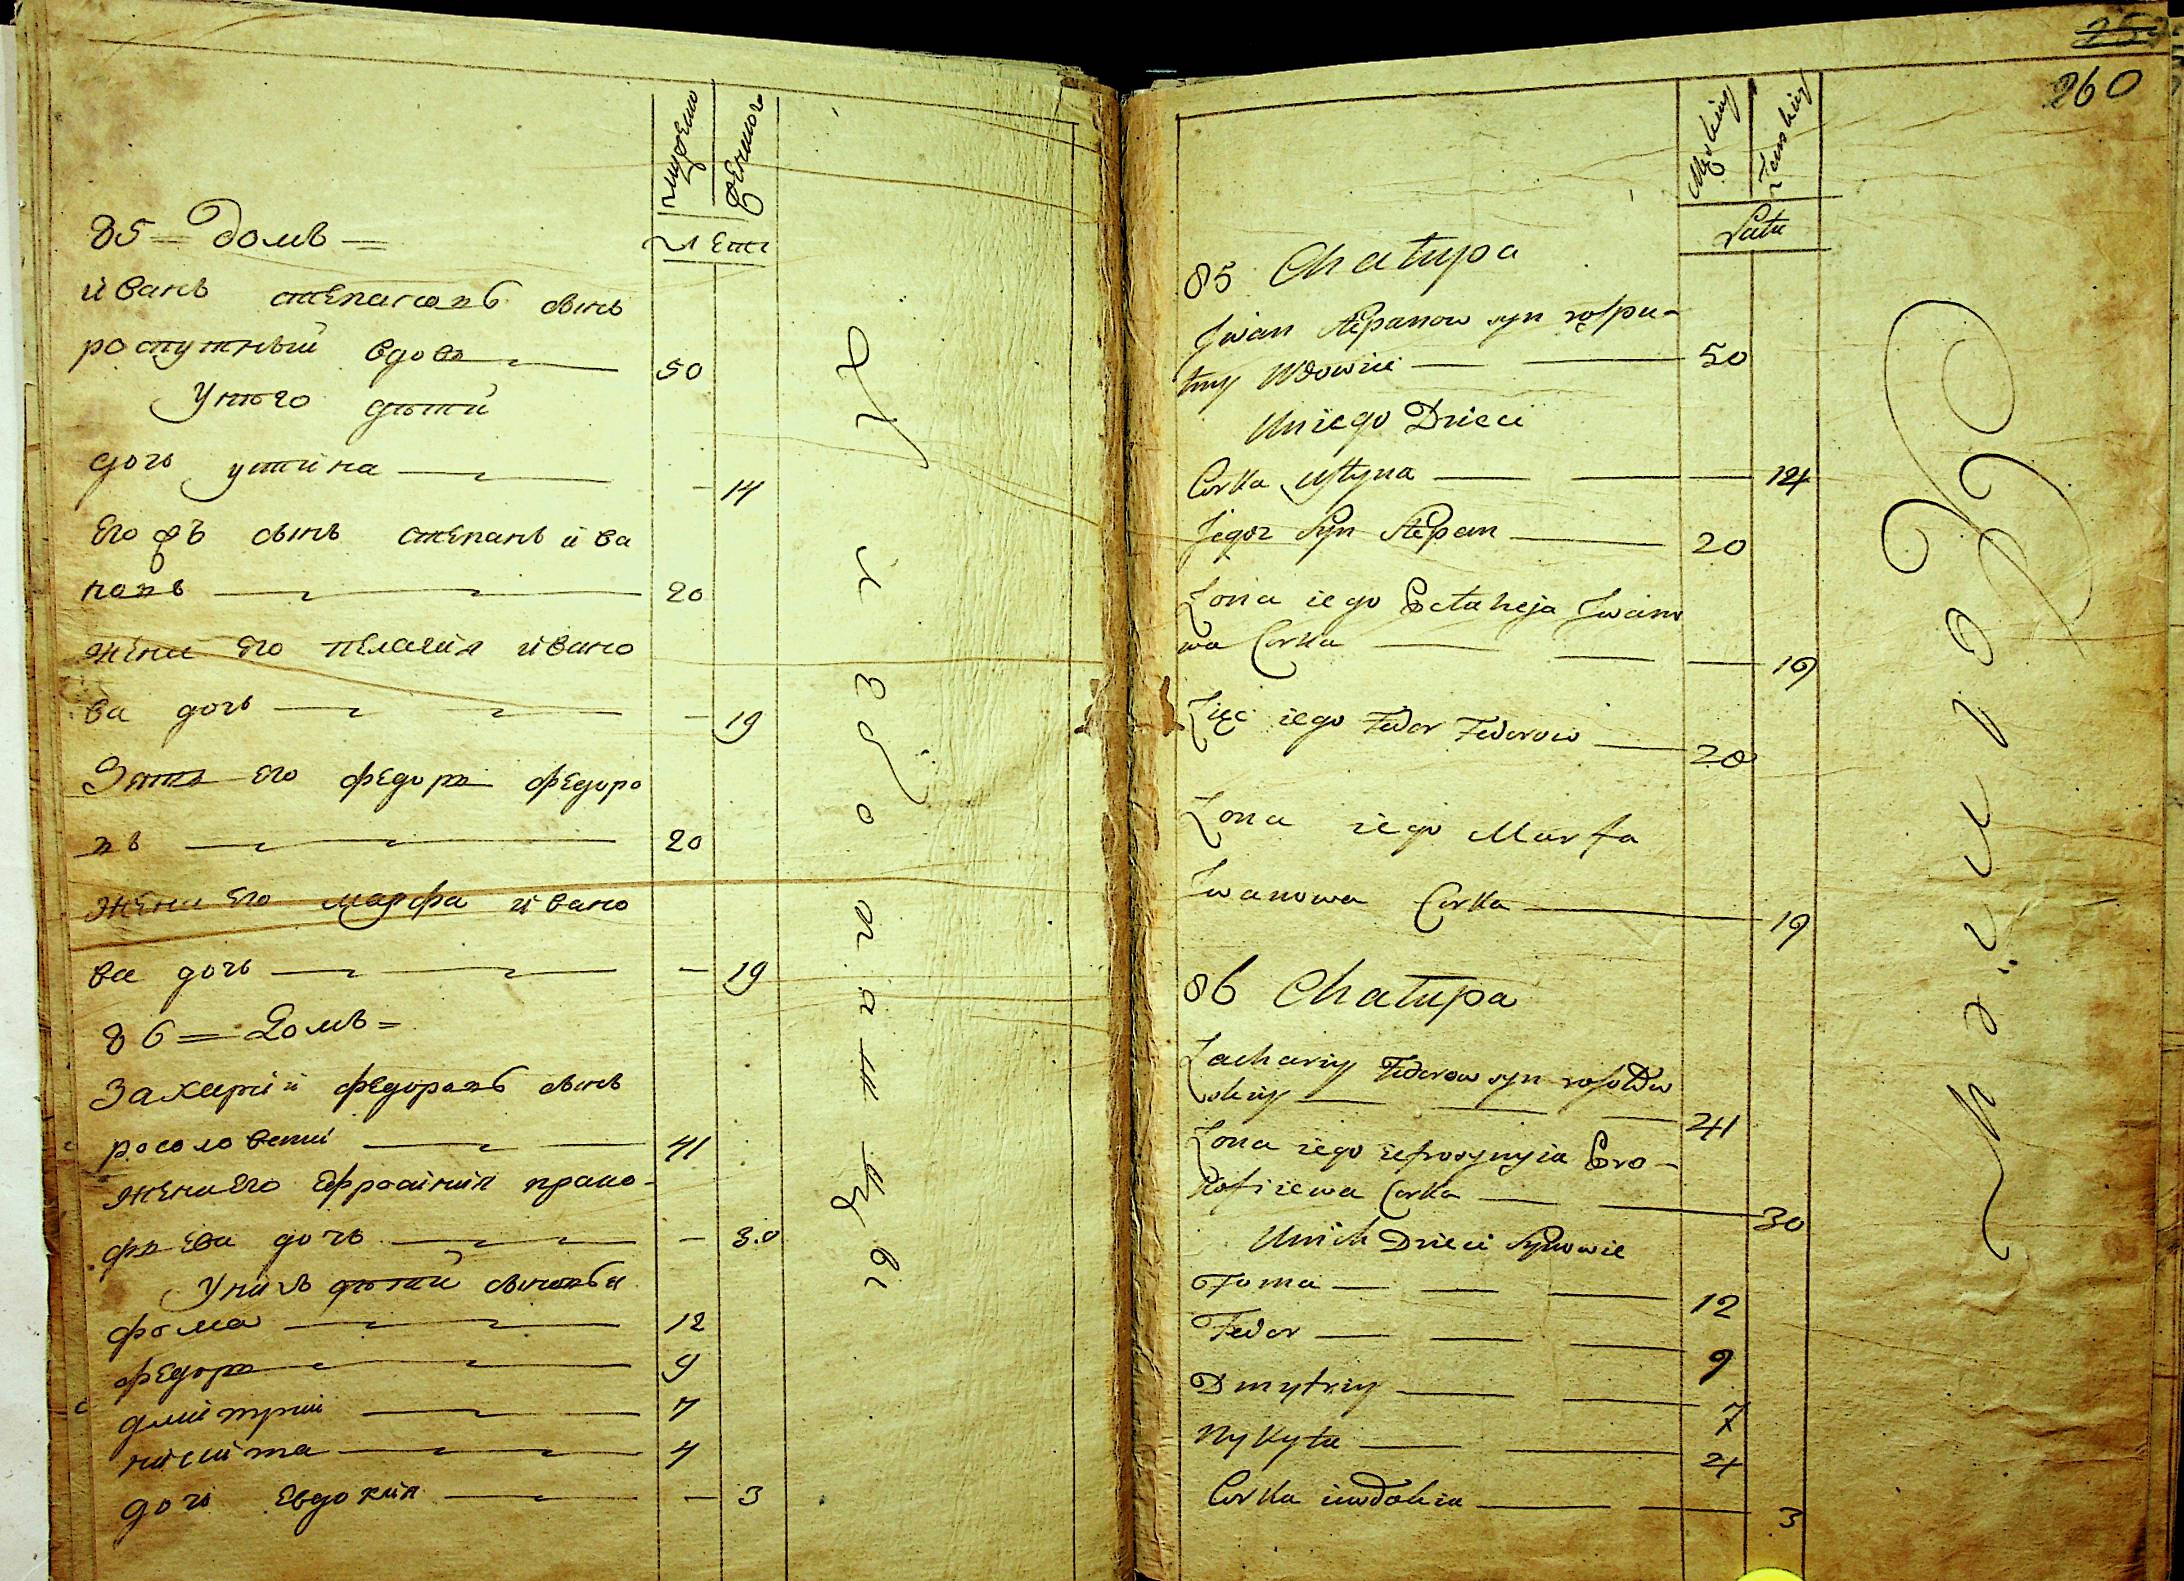 мужеска
женска
лета
85 = домъ =
йванъ степановъ сынъ
роспутный вдовъ 50
У него дѣти
дочь устина - 14
Его же сынъ степанъ ива
новъ 20
жена его пелагия ивано
ва дочь - 19
Зять его федоръ федоро
въ 20
жена его марфа ивано
ва дочь - 19
86 = Домъ =
Захарий федоровъ сынъ
росоловский 41
жена его Ефросиния проко-
фиева дочь - 30
У нихъ дѣтий сыновья
фома 12
федоръ 9
дмитрий 7
никита 4
дочь Евдокия - 3
260
Męskiey
Zenskiey
Lata
85 Chatupa
Jwan Stepanow syn rospu-
tny Wdowiec 50
U niego Dzieci
Corka Ustyna 14
Jegoz Syn Stepan 20
Zona iego Pelaheja Jwano
wa Corka 19
Zięc iego Fedor Fedorow 20
Zona iego Marfa
Jwanowa Corka 19
86 Chatupa
Zachariy Fedorow syn rosołow
skiey 41
Zona iego iefrosynyia Pro-
kofiiewa Corka 30
U nich Dzieci Synowie
Foma 12
Fedor 9
Dmytriy 7
Nykyta 4
Corka iwdokia 3